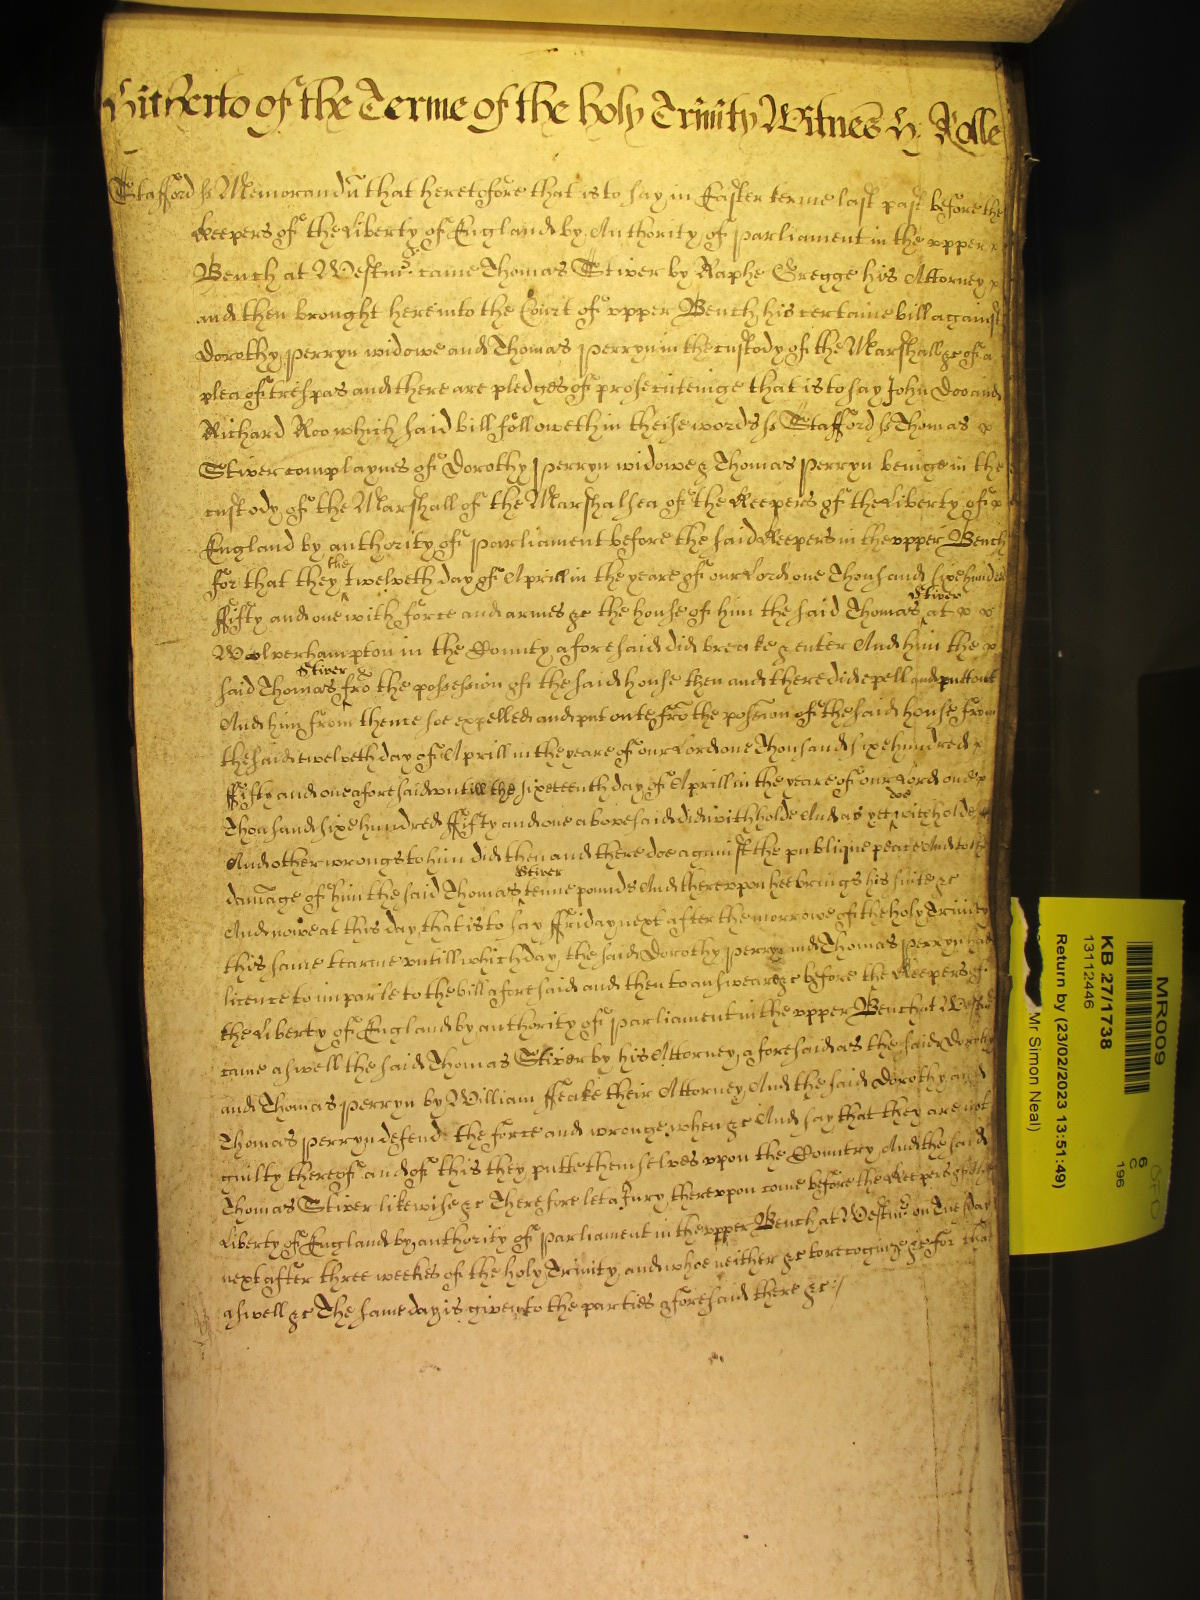 Hitherto of the Terme of the holy Trinity Witnes H. Rolle
Stafford ss Memorandū that heretofore that is to say in Easter terme last past before the
Keepers of the Liberty of England by Authority of Parliament in the upper
Bench at Westmr came Thomas Stiver by Raphe Gregge his Attorney
and then brought here into the Court of upper Bench his certaine bill against
Dorothy Perryn widowe and Thomas Perryn in the custody of the Marshall &c of a
plea of trespas and there are pledges of prosecuteinge that is to say John Doo and
Richard Roo which said bill followeth in theise words ss Stafford ss Thomas
Stiver complaynes of Dorothy Perryn widowe & Thomas Perryn beinge in the
custody of the Marshall of the Marshalsea of the Keepers of the Liberty of
England by authority of Parliament before the said Keepers in the upper Bench
for that they the twelveth day of Aprill in the yeare of our Lord one Thousand sixe hundred
ffifty and one with force and armes &c the house of him the said Thomas Stiver at
Wolverhampton in the County aforesaid did breake & enter And him the
said Thomas Stiver frō the possession of the said house then and there did epell and put out
And him from thence soe expelled and put oute frō the possēion of the said house from
the said twelveth day of Aprill in the yeare of our Lord one Thousand sixe hundred
ffifty and one aforesaid untill the sixeteenth day of Aprill in the yeare of our Lord one
Thousand sixe hundred ffifty and one abovesaid did withholde And as yet doe witholde
And other wrongs to him did then and there doe against the publique peace And to the
damāge of him the said Thomas Stiver tenne pounds And thereupon hee brings his suite &c
And nowe at this day that is to say ffriday next after the morrowe of the holy Trinity
this same tearme untill which day the said Dorothy Perryn and Thomas Perryn had
licence to imparle to the bill aforesaid and then to answeare &c before the Keepers of
the Liberty of England by authority of Parliament in the upper Bench at Westmr
came aswell the said Thomas Stiver by his Attorney aforesaid as the said Dorothy
and Thomas Perryn by William ffeake their Attorney And the said Dorothy and
Thomas Perryn defend the force and wronge when &c And say that they are not
guilty thereof and of this they putte themselves upon the Country And the said
Thomas Stiver likewise &c Therefore let a Jury thereupon come before the Keepers of the
Liberty of England by authority of Parliament in the upper Bench at Westmr on Tuesday
next after three weekes of the holy Trinity and whoe neither &c to recognize &c for that
aswell &c The same day is given to the parties aforesaid there &c
MR009
KB 27/1738
13112446
Return by (23/02/2023 13:51:49)
Mr Simon Neal)
6
C
196